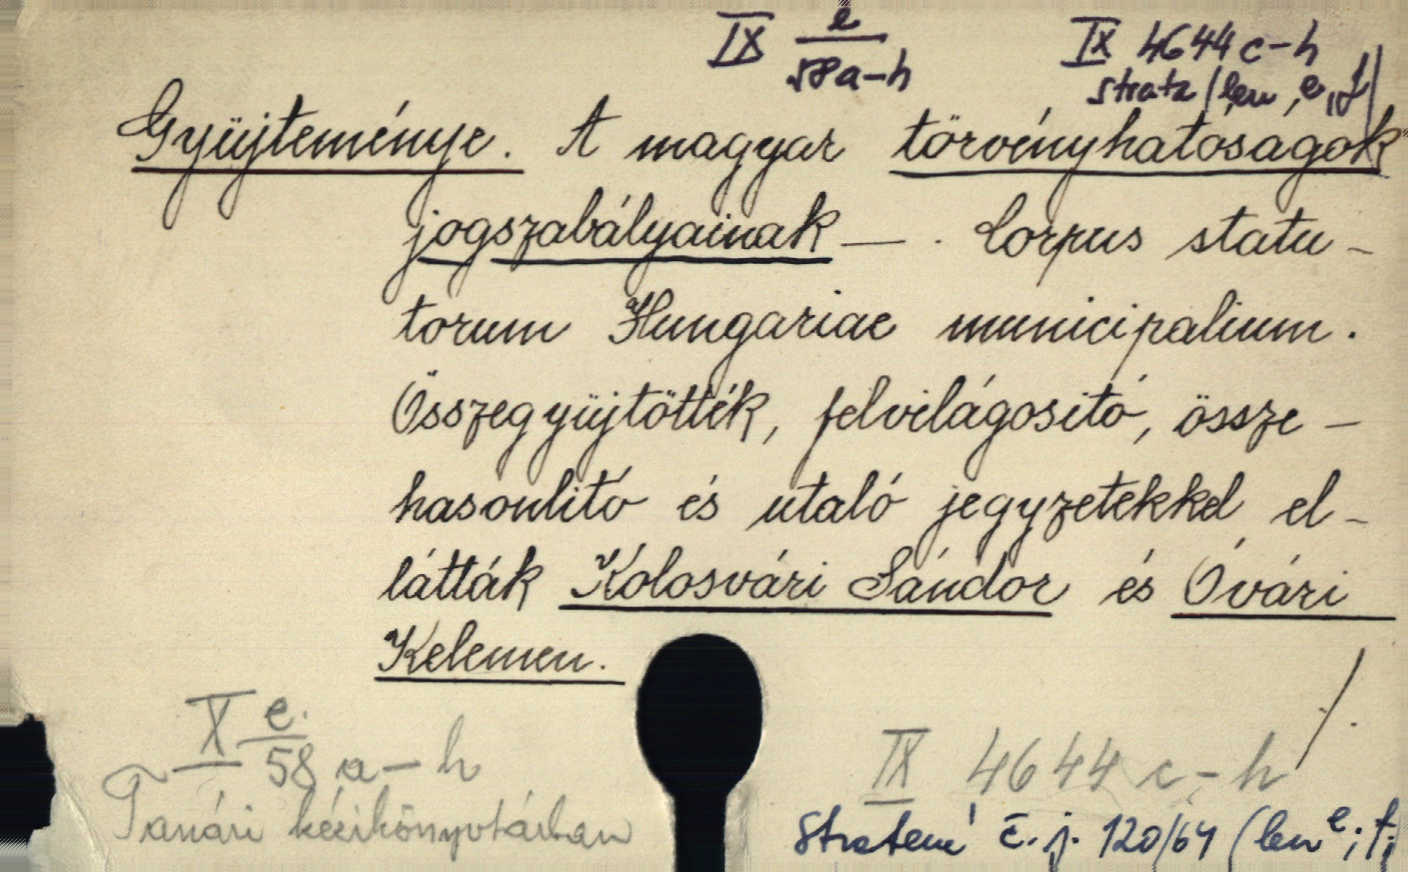 IX e/58 a-h IX 4644 c-h
strata (len e, f)
Gyüjteménye. A magyar törvényhatóságok
jogszabályainak — . Corpus statu-
torum Hungariae municipalium.
Összegyüjtötték, felvilágositó, össze-
hasonlitó és utaló jegyzetekkel el-
látták Kolosvári Sándor és Óvári
Kelemen.
X e./58 a-h
Tanári kézikönyvtárban
IX 4644 c-h
stratené č. j. 120/64 (len e; f;